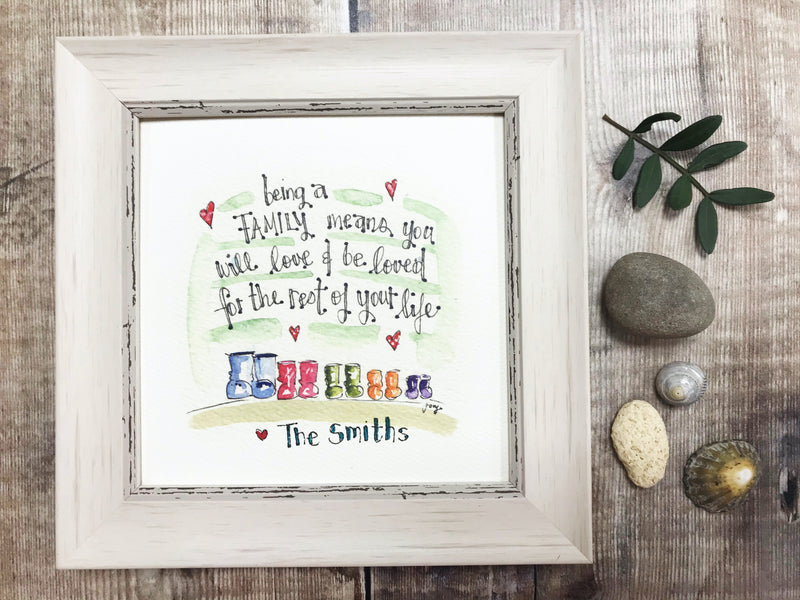 being a
FAMILY means you
will love & be loved
for the rest of your life
The Smiths